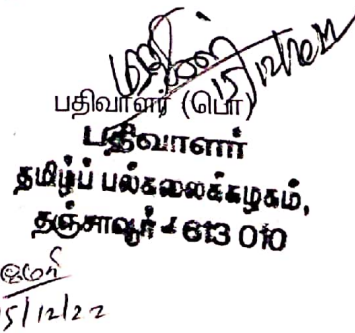 15/12/2022
பதிவாளர் (பொ)
பதிவாளர்
தமிழ்ப் பல்கலைக்கழகம்,
தஞ்சாவூர் - 613 010
15/12/22